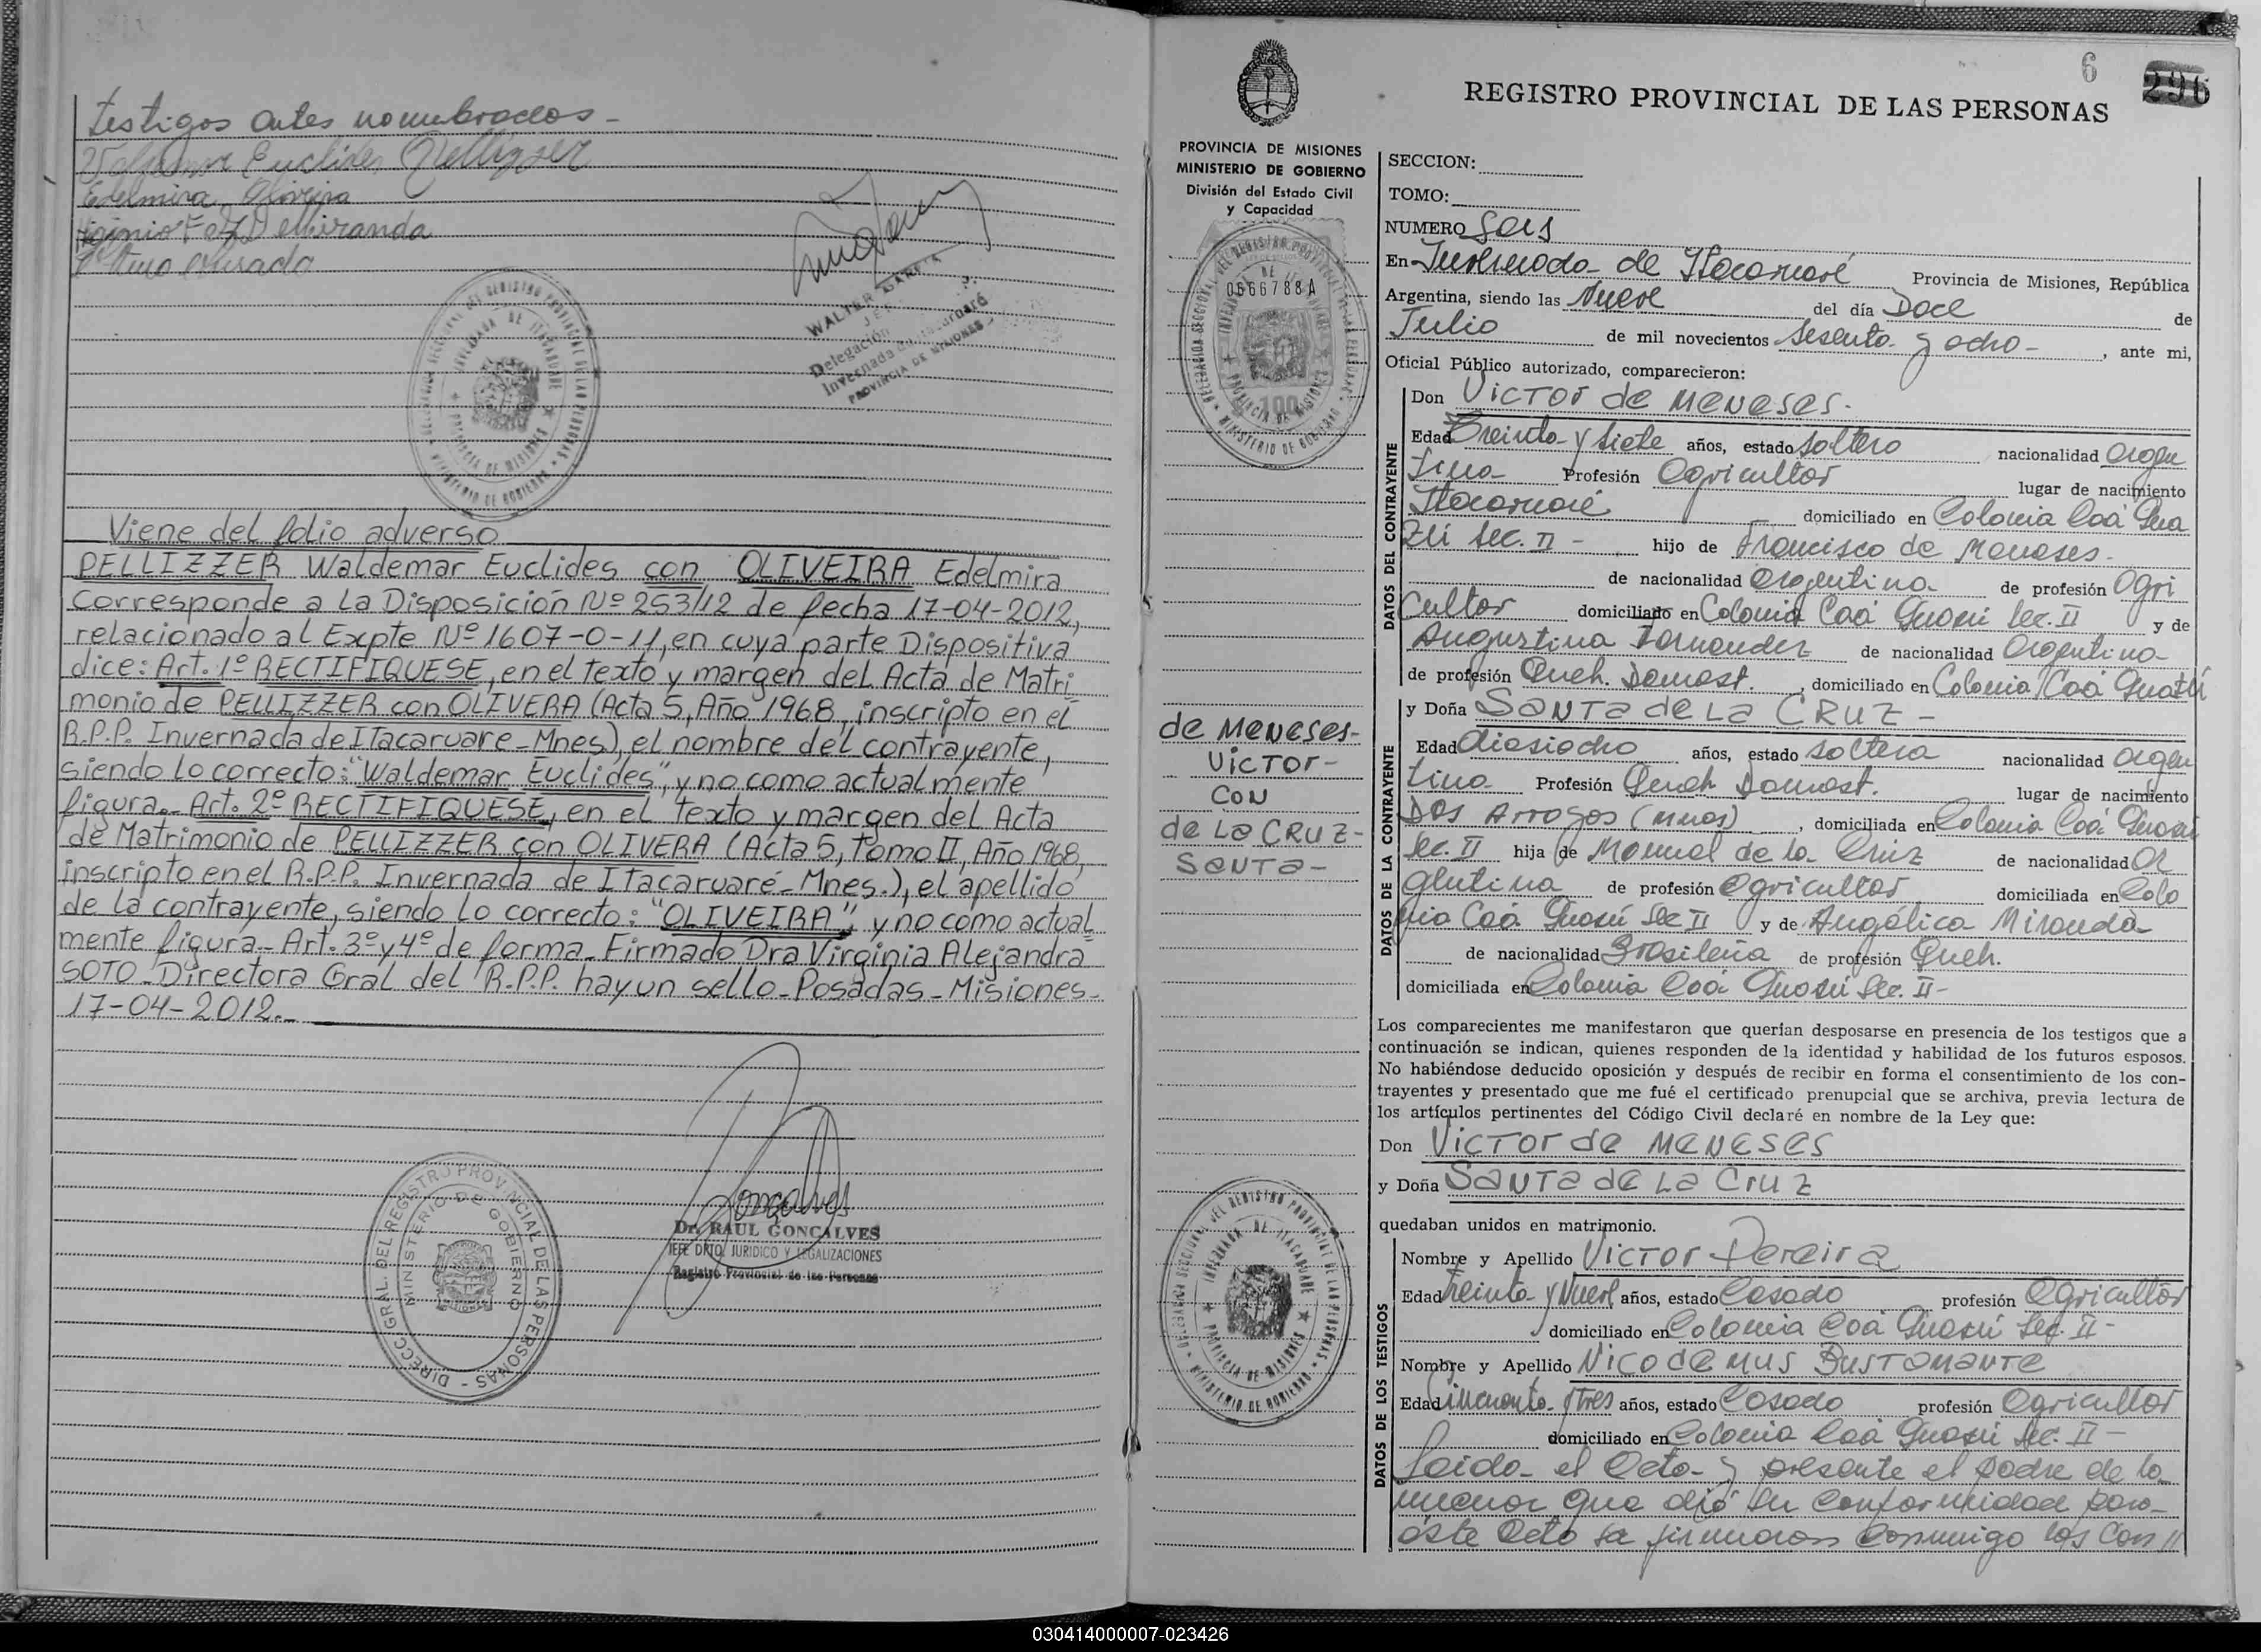 testigos antes nombrados -
Waldemar Euclides Pellizzer
Edelmira Oliveira
Miranda
WALTER GARCIA
JEFE
Delegación
Invernada de Itacaruaré
PROVINCIA DE MISIONES
Viene del folio adverso
PELLIZZER Waldemar Euclides con OLIVEIRA Edelmira
Corresponde a La Disposición Nº 253/12 de fecha 17-04-2012,
relacionado al Expte Nº 1607-0-11, en cuya parte Dispositiva
dice: Art. 1º RECTIFIQUESE, en el texto y margen del Acta de Matri
monio de PELLIZZER con OLIVERA (Acta 5, Año 1968, inscripto en el
R.P.P. Invernada de Itacaruare - Mnes), el nombre del contrayente,
siendo lo correcto: "Waldemar Euclides", y no como actualmente
figura.- Art. 2º RECTIFIQUESE, en el texto y margen del Acta
de Matrimonio de PELLIZZER con OLIVERA (Acta 5, Tomo II, Año 1968,
inscripto en el R.P.P. Invernada de Itacaruaré - Mnes.), el apellido
de la contrayente, siendo lo correcto: "OLIVEIRA", y no como actual
mente figura.- Art. 3º y 4º de forma - Firmado Dra Virginia Alejandra
SOTO - Directora Gral del R.P.P. hay un sello - Posadas - Misiones -
17-04-2012.-
Goncalves
Dr. RAUL GONCALVES
JEFE DPTO. JURIDICO Y LEGALIZACIONES
Registro Provincial de las Personas
DIRECC. GRAL. DEL REGISTRO PROVINCIAL DE LAS PERSONAS -
MINISTERIO DE GOBIERNO
6
296
REGISTRO PROVINCIAL DE LAS PERSONAS
PROVINCIA DE MISIONES
MINISTERIO DE GOBIERNO
División del Estado Civil
y Capacidad
0666788A
de Meneses-
Victor-
con
de La Cruz-
Santa-
SECCION:
TOMO:
NUMERO Seis
En Invernada de Itacaruaré Provincia de Misiones, República
Argentina, siendo las Nueve del día Doce de
Julio de mil novecientos sesenta y ocho - , ante mi,
Oficial Público autorizado, comparecieron:
DATOS DEL CONTRAYENTE
Don Victor de Meneses.
Edad Treinta y siete años, estado soltero nacionalidad argen
tina Profesión Agricultor lugar de nacimiento
Itacaruaré domiciliado en Colonia Caá Gua
zú Sec. II - hijo de Francisco de Meneses -
de nacionalidad argentina de profesión Agri
cultor domiciliado en Colonia Caá Guazú Sec. II y de
Augustina Fernandez de nacionalidad Argentina
de profesión Queh. Domest. , domiciliado en Colonia Caá Guazú
DATOS DE LA CONTRAYENTE
y Doña Santa de La Cruz -
Edad diesiocho años, estado soltera nacionalidad argen
tina Profesión Queh Domest. lugar de nacimiento
Dos Arroyos (Mnes) , domiciliada en Colonia Caá Guazú
Sec. II hija de Manuel de la Cruz de nacionalidad Ar
gentina de profesión Agricultor domiciliada en Colo
nia Caá Guazú Sec II y de Angélica Miranda
de nacionalidad Brasileña de profesión Queh.
domiciliada en Colonia Caá Guazú Sec. II -
Los comparecientes me manifestaron que querían desposarse en presencia de los testigos que a
continuación se indican, quienes responden de la identidad y habilidad de los futuros esposos.
No habiéndose deducido oposición y después de recibir en forma el consentimiento de los con-
trayentes y presentado que me fué el certificado prenupcial que se archiva, previa lectura de
los artículos pertinentes del Código Civil declaré en nombre de la Ley que:
Don Victor de Meneses
y Doña Santa de La Cruz
quedaban unidos en matrimonio.
DATOS DE LOS TESTIGOS
Nombre y Apellido Victor Pereira
Edad Treinta y Nueve años, estado Casado profesión Agricultor
domiciliado en Colonia Caá Guazú Sec. II -
Nombre y Apellido Nicodemus Bustamante
Edad Cincuenta y tres años, estado Casado profesión Agricultor
domiciliado en Colonia Caá Guazú Sec. II -
Leida el Acta y presente el padre de la
menor que dió su conformidad para
éste Acto la firmaron conmigo los con //
030414000007-023426